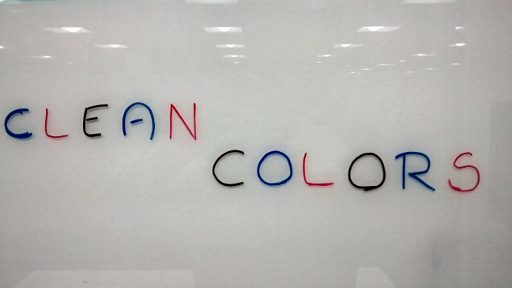 CLEAN
COLORS